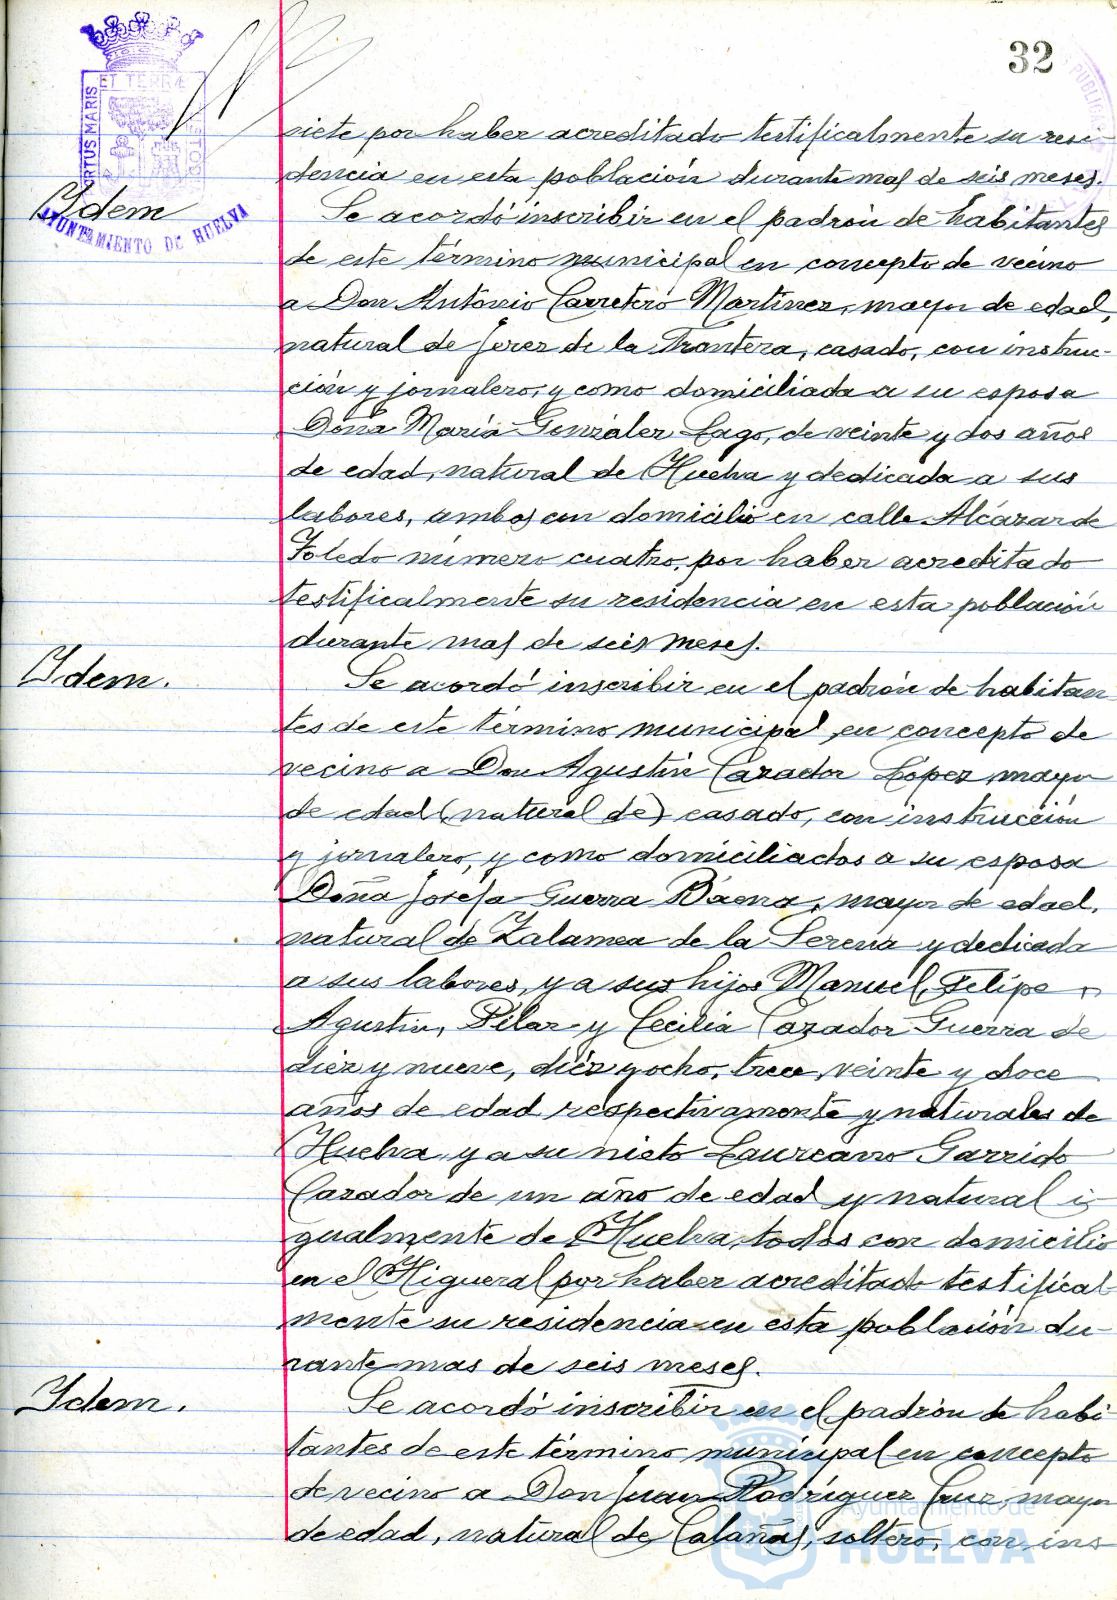 32
PORTUS MARIS
ET TERRÆ
AYUNTAMIENTO DE HUELVA
siete por haber acreditado testificalmente su resi-
dencia en esta población durante mas de seis meses.
Idem
Se acordó inscribir en el padrón de habitantes
de este término municipal en concepto de vecino
a Don Antonio Carretero Martínez, mayor de edad,
natural de Jerez de la Frontera, casado, con instruc-
ción y jornalero, y como domiciliada a su esposa
Doña María González Lago, de veinte y dos años
de edad, natural de Huelva y dedicada a sus
labores, ambos con domicilio en calle Alcázar de
Toledo número cuatro, por haber acreditado
testificalmente su residencia en esta población
durante mas de seis meses.
Idem.
Se acordó inscribir en el padrón de habitan
tes de este término municipal en concepto de
vecino a Don Agustín Cazador López mayor
de edad (natural de) casado, con instrucción
y jornalero, y como domiciliados a su esposa
Doña Josefa Guerra Baena, mayor de edad,
natural de Zalamea de la Serena y dedicada
a sus labores, y a sus hijos Manuel, Felipe,
Agustín, Pilar y Cecilia Cazador Guerra de
diez y nueve, diez y ocho, trece, veinte y doce
años de edad respectivamente y naturales de
Huelva y a su nieto Laureano Garrido
Cazador de un año de edad y natural i-
gualmente de Huelva, todos con domicilio
en el Higueral por haber acreditado testifical
mente su residencia en esta población du-
rante mas de seis meses.
Idem.
Se acordó inscribir en el padrón de habi-
tantes de este término municipal en concepto
de vecino a Don Juan Rodríguez Cruz, mayor
de edad, natural de Calañas, soltero, con ins
Ayuntamiento de
HUELVA